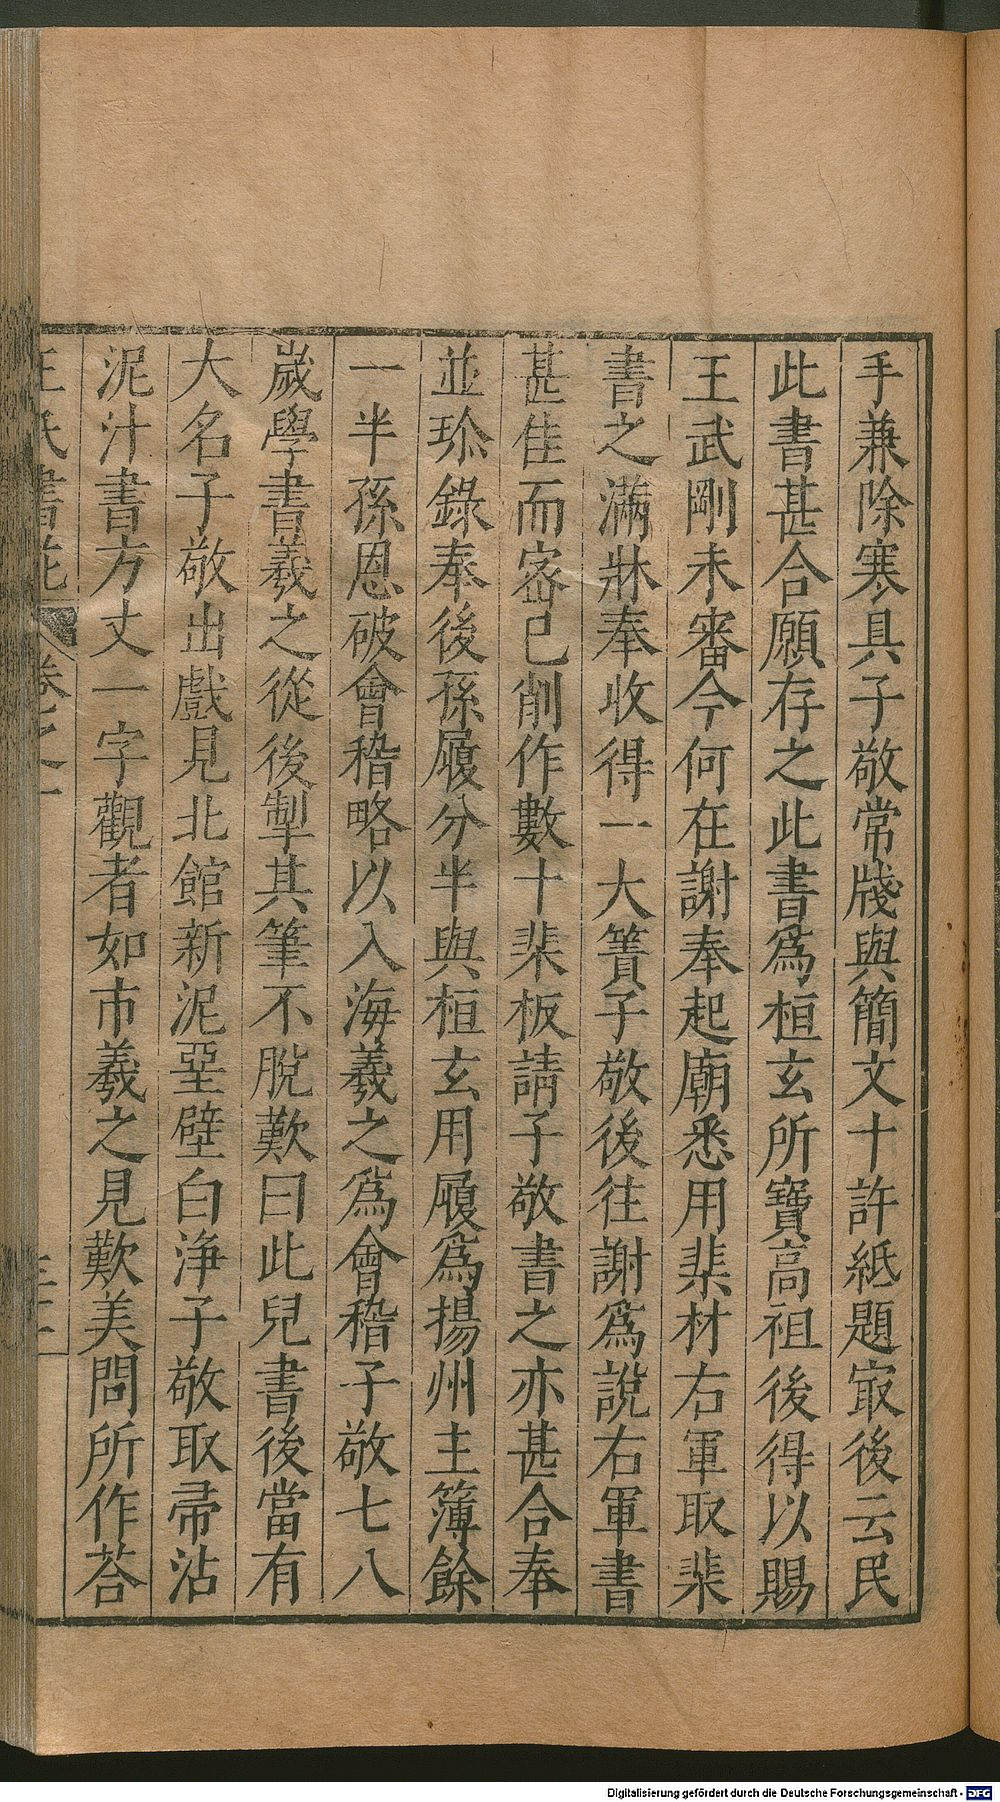 手兼除寒具子敬常牋與簡文十許紙題㝡後云民
此書甚合願存之此書爲桓玄所寶高祖後得以賜
王武剛未審今何在謝奉起廟悉用棐材右軍取棐
書之滿牀奉收得一大簣子敬後往謝爲說右軍書
甚佳而宻已削作數十棐板請子敬書之亦甚合奉
並珎錄奉後孫履分半與桓玄用履爲揚州主簿餘
一半孫恩破會稽略以入海羲之爲會稽子敬七八
歲學書羲之從後掣其筆不脫歎曰此兒書後當有
大名子敬出戲見北館新泥堊壁白淨子敬取帚沾
泥汁書方丈一字觀者如市羲之見歎美問所作荅
王氏書苑 卷之一
Digitalisierung gefördert durch die Deutsche Forschungsgemeinschaft - DFG